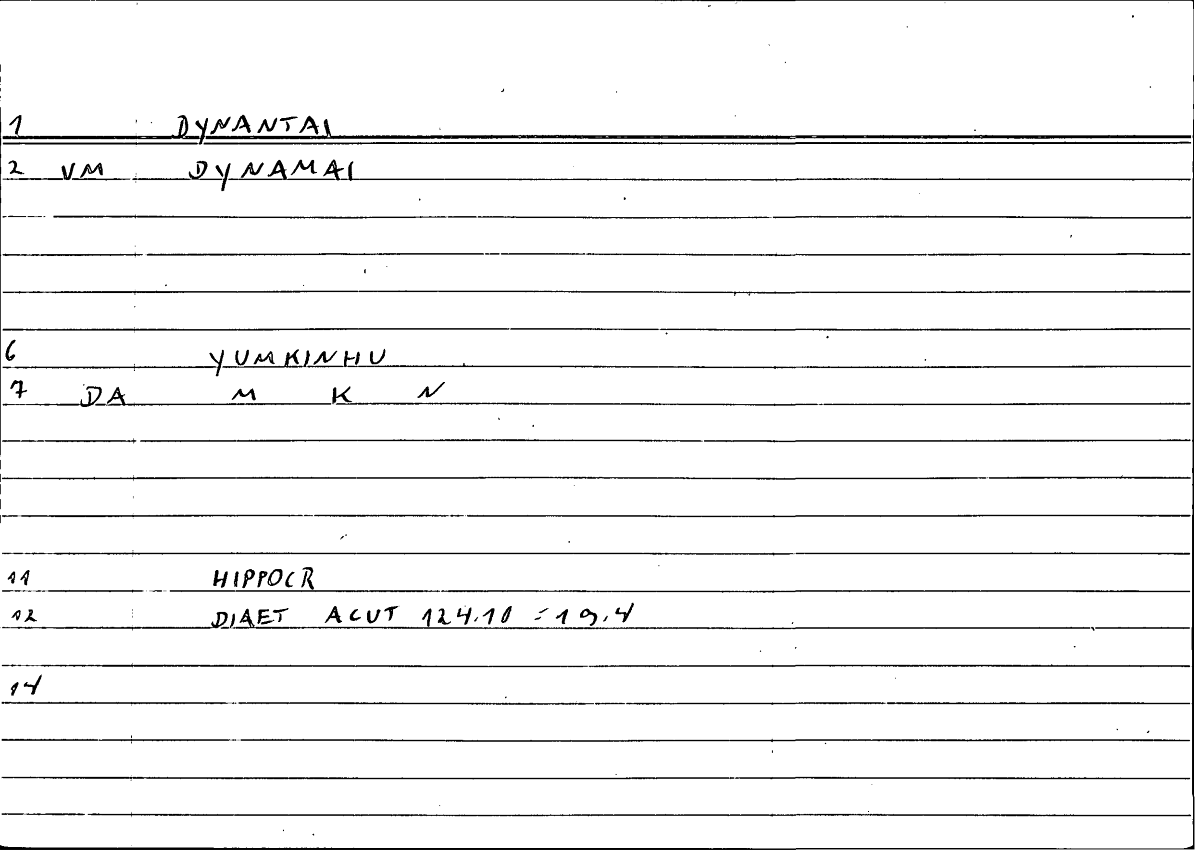 1 DYNANTAI
2 VM DYNAMAI
6 YUMKINHU
7 DA M K N
11 HIPPOCR
12 DIAET ACUT 124.10 = 19.4
14